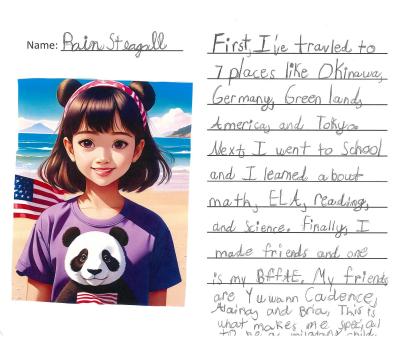 Name: Rain Steagall
First, I've travled to
7 places like Okinawa,
Germany, Green land,
America, and Tokyo.
Next, I went to School
and I learned about
math, ELA, reading,
and science. Finally, I
made friends and one
is my BFFAE. My friends
are Yuwann Cadence,
Alainay and Bria, This is
what makes me special
to be a military child